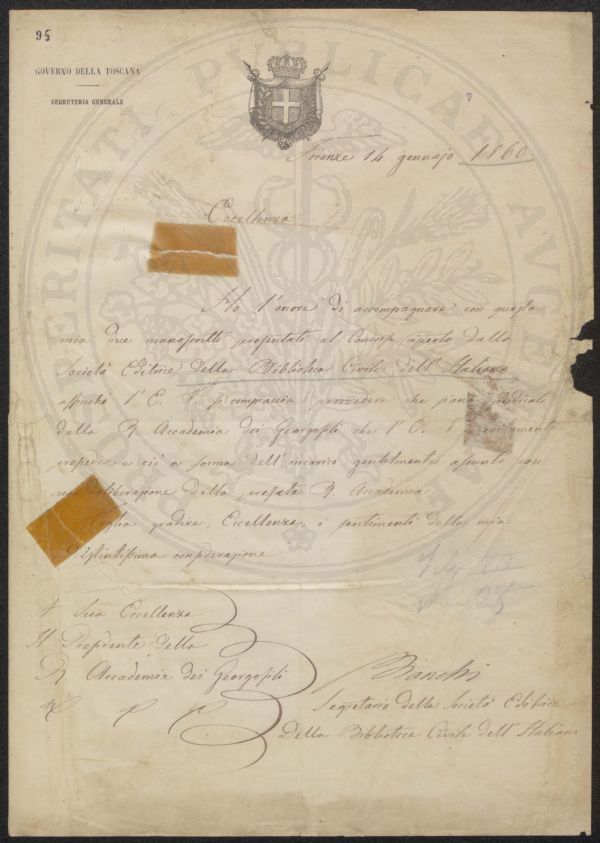 95
GOVERNO DELLA TOSCANA
SEGRETERIA GENERALE
Firenze 14 gennajo 1860
Eccellenza
Ho l'onore di accompagnare con questa
mia due manoscritti presentati al Concorso aperto dalla
Società Editrice della Biblioteca Civile dell'Italiano
affinché l'E. V. si compiaccia provvedere che siano giudicati
dalla R. Accademia dei Georgofili che l'E. V.
presiede, e ciò a forma dell'incarico gentilmente assunto con
deliberazione della prefata R. Accademia.
Voglia gradire, Eccellenza, i sentimenti della mia
distintissima considerazione
A Sua Eccellenza
Il Presidente della
R. Accademia dei Georgofili
Bianchi
Segretario della Società Editrice
Della Biblioteca Civile dell'Italiano
PROSPERITATI PUBLICAE AUGENDAE